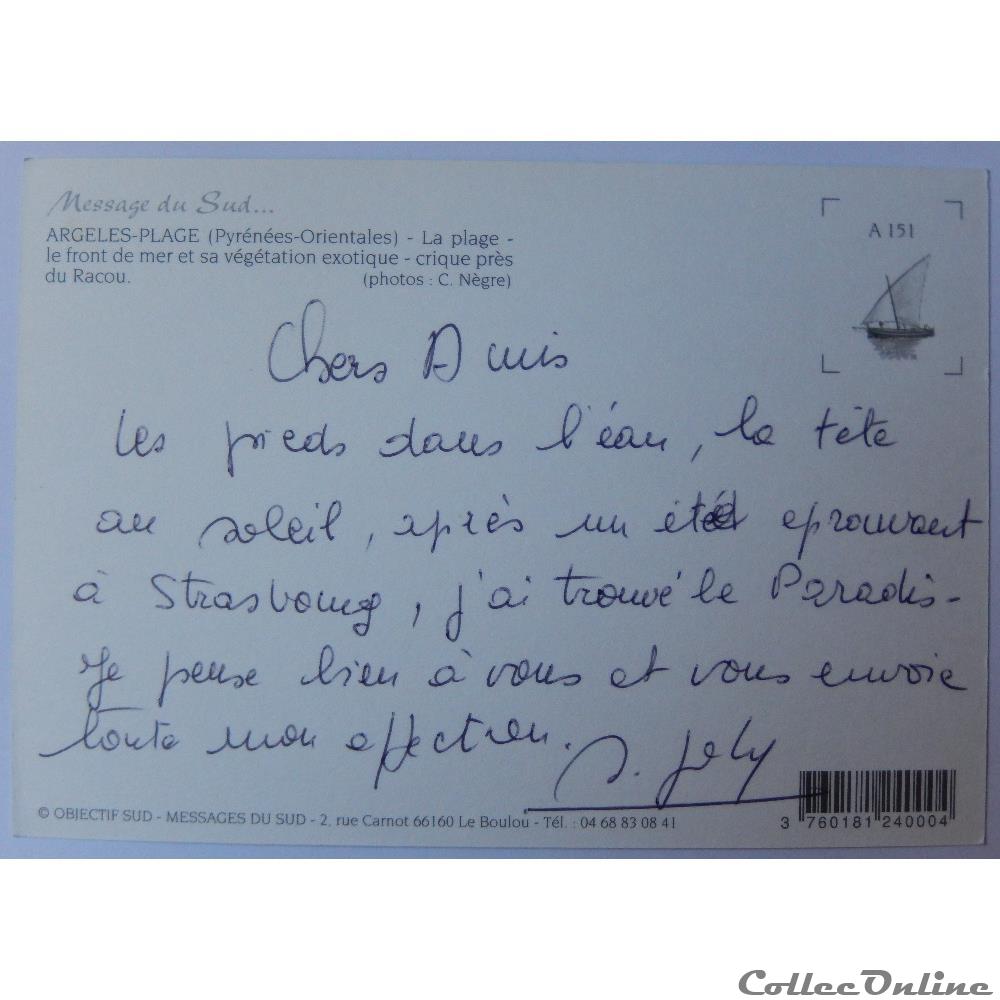 Message du Sud...
ARGELES-PLAGE (Pyrénées-Orientales) - La plage -
le front de mer et sa végétation exotique - crique près
du Racou. (photos : C. Nègre)
A 151
Chers Amis
les pieds dans l'éau, la tête
au soleil, après un été eprouvant
à Strasbourg, j'ai trouvé le Paradis-
Je pense bien à vous et vous envoie
toute mon affection.
© OBJECTIF SUD - MESSAGES DU SUD - 2, rue Carnot 66160 Le Boulou - Tél. : 04 68 83 08 41
3 760181 240004
CollecOnline